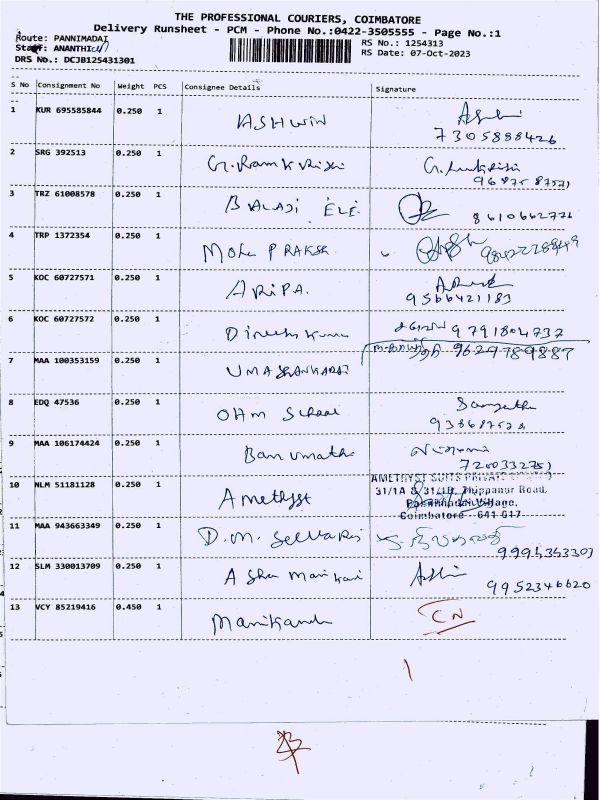 THE PROFESSIONAL COURIERS, COIMBATORE
Delivery Runsheet - PCM - Phone No.:0422-3505555 - Page No.:1
Route: PANNIMADAI
Staff: ANANTHI
DRS No.: DCJB125431301
RS No.: 1254313
RS Date: 07-Oct-2023
S No Consignment No Weight PCS Consignee Details Signature
1 KUR 695585844 0.250 1 ASHWIN
7305888426
2 SRG 392513 0.250 1 G. Ramkrish
3 TRZ 61008578 0.250 1 BALAJI ELE.
8610662771
4 TRP 1372354 0.250 1 Mohn PRAKSH.
5 KOC 60727571 0.250 1 ARIPA.
9566421183
6 KOC 60727572 0.250 1 Dinesh kumar 9791804737
7 MAA 100353159 0.250 1 UMASHANKARAI 9629789887
8 EDQ 47536 0.250 1 OHM School Sangeetha
9 MAA 106174424 0.250 1 Banumathi
10 NLM 51181128 0.250 1 Amethyst
AMETHYST SUITS PRIVATE LIMITED
31/1A & 31/1B, Thippanur Road,
Pannimadai Village,
Coimbatore - 641 017
11 MAA 943663349 0.250 1 D.M. Selvaraj
9994343303
12 SLM 330013709 0.250 1 A Sha Manikari
9952346620
13 VCY 85219416 0.450 1 Manikanda CN